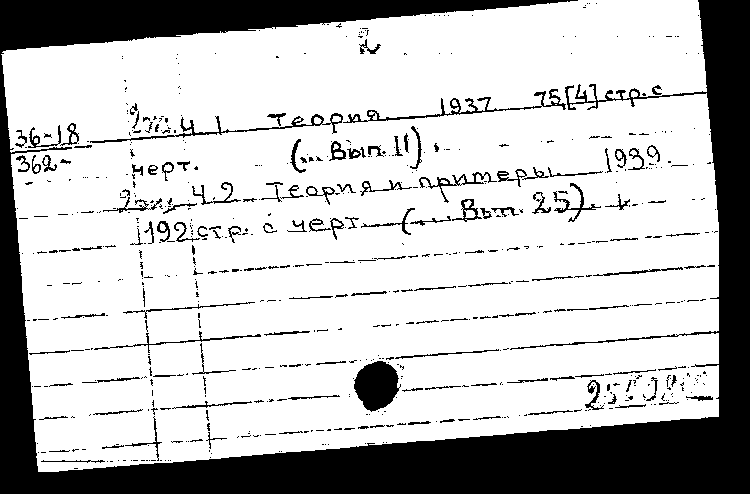 2
36-18 2эт. Ч 1. Теория 1937 75,[4] стр. с
362- черт. (... Вып. 11).
Ч.2 Теория и примеры. 1939.
192 стр. с черт. (... Вып. 25).